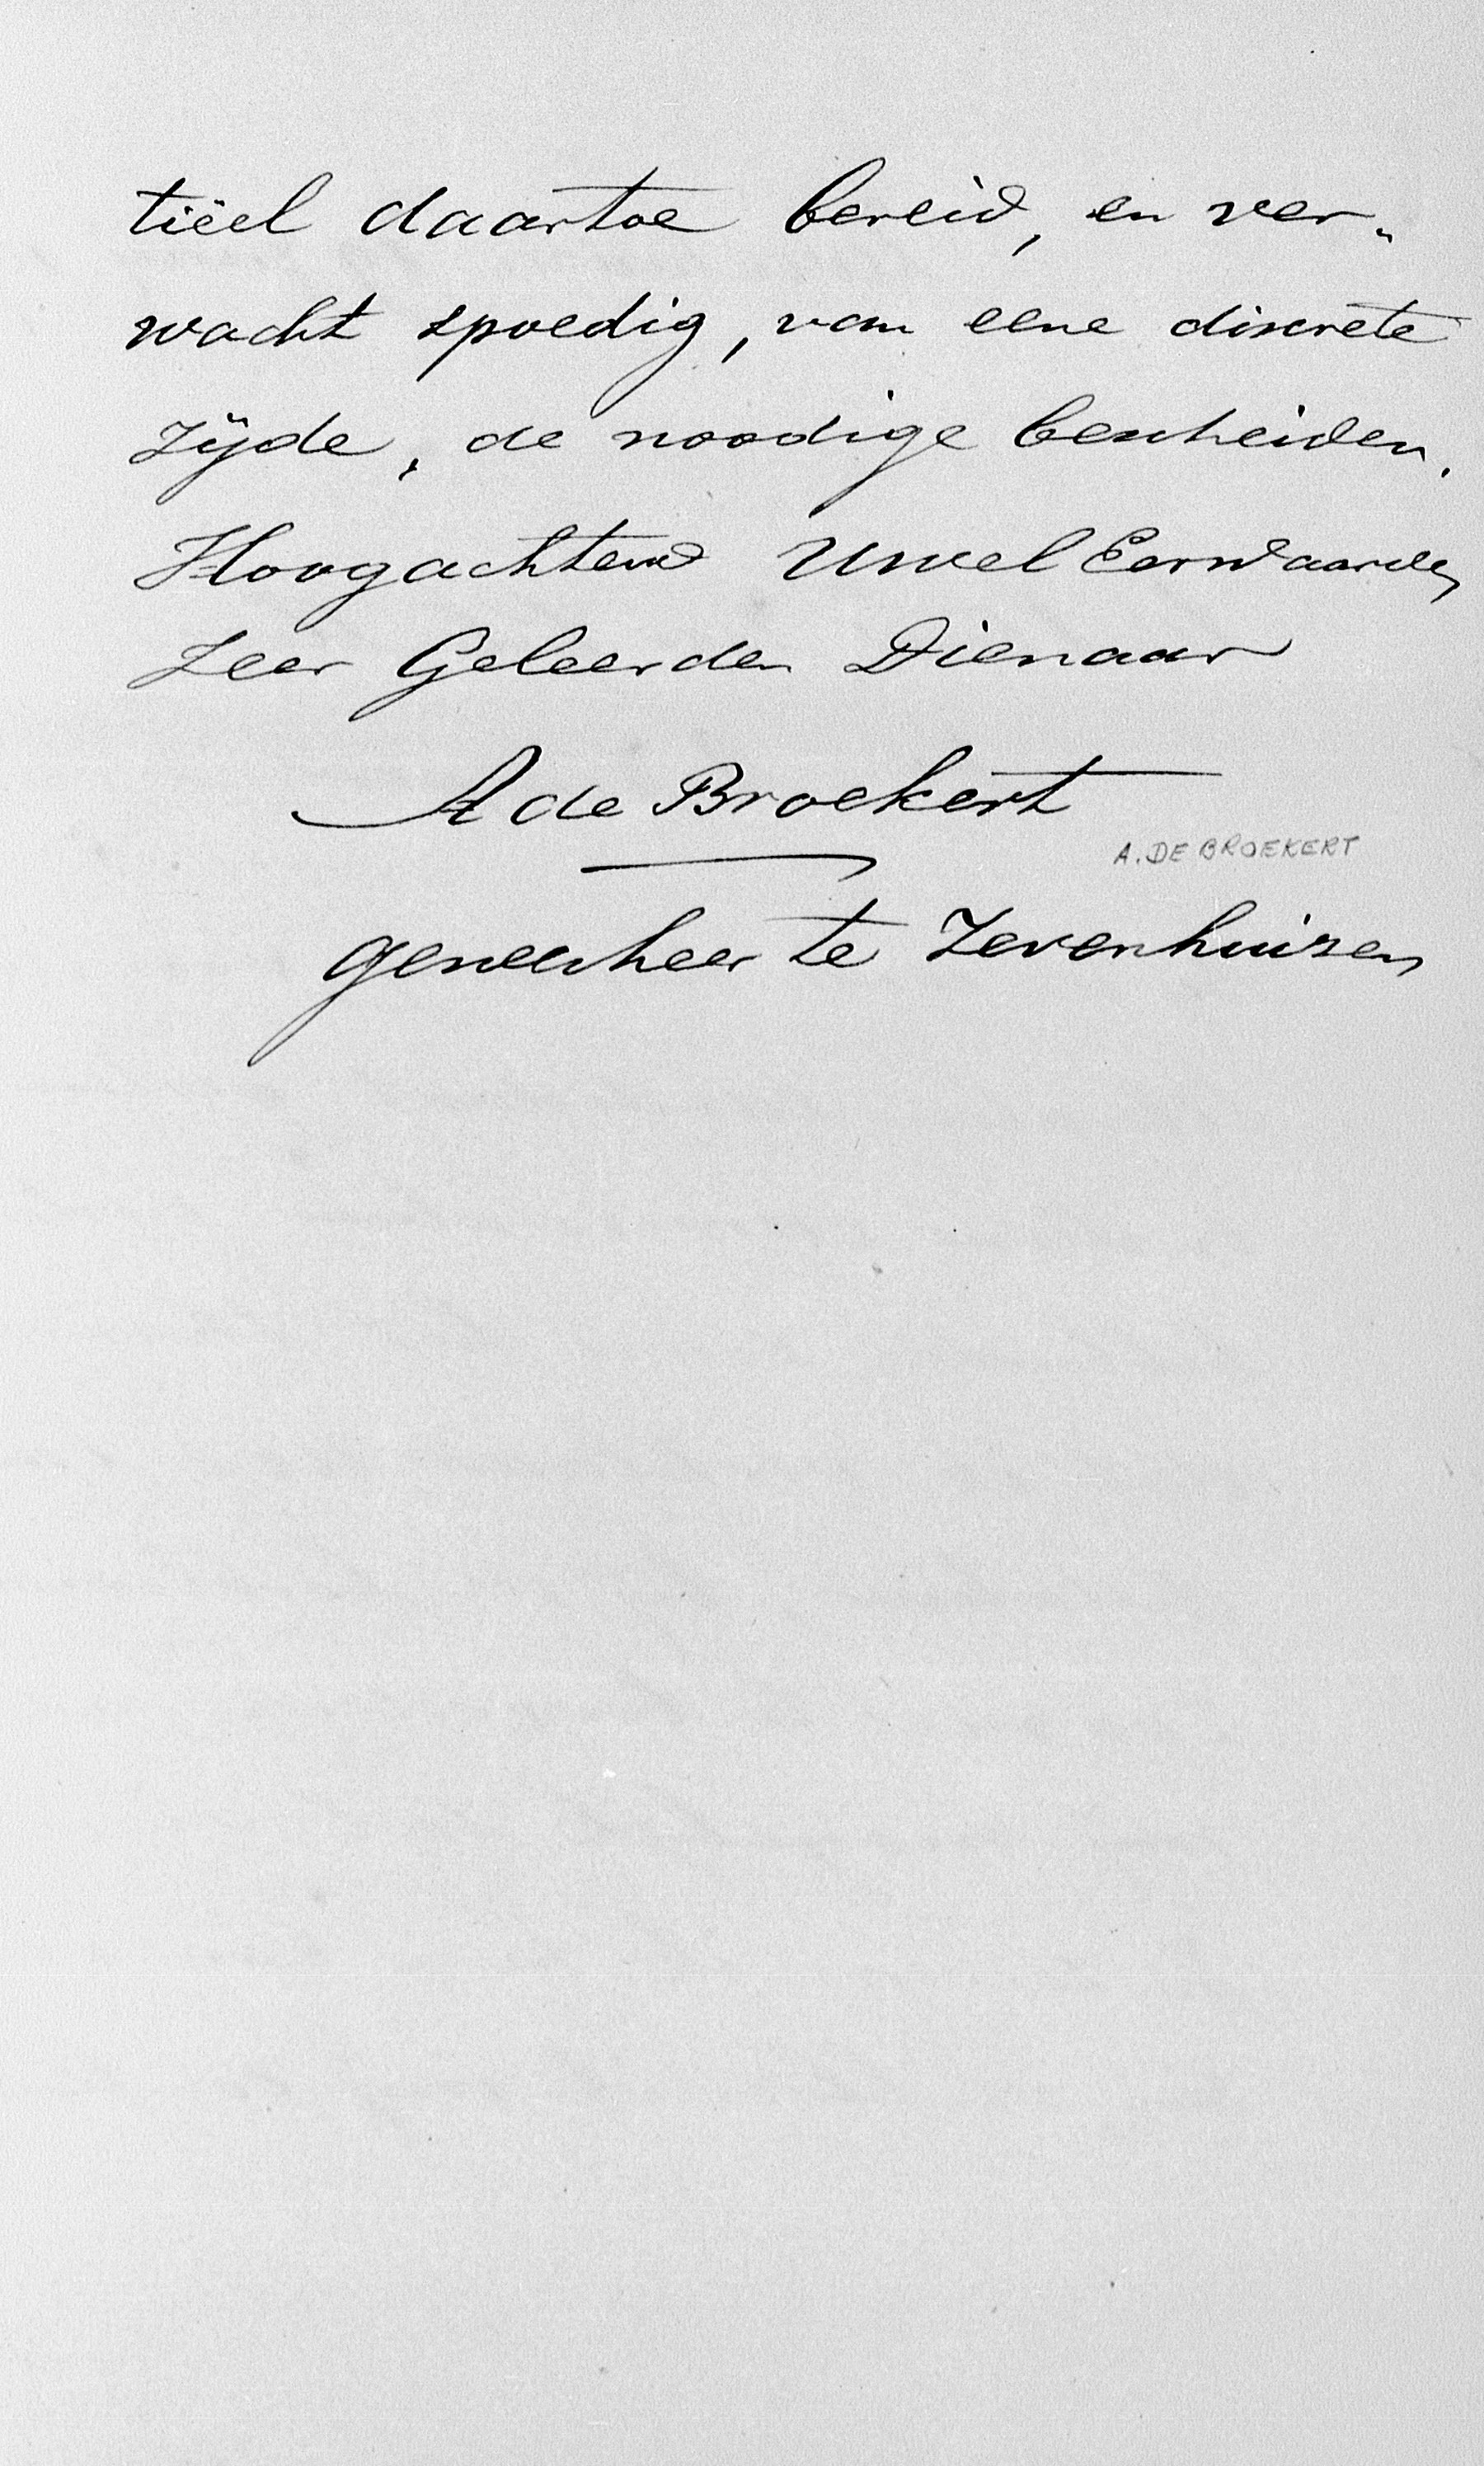 tiëel daartoe bereid, en ver„
wacht spoedig, van eene discrete
zijde, de noodige bescheiden.
Hoogachtend UWel Eerwaarde,
Zeer Geleerden Dienaar
A de Broekert
A. DE BROEKERT
geneesheer te Zevenhuizen